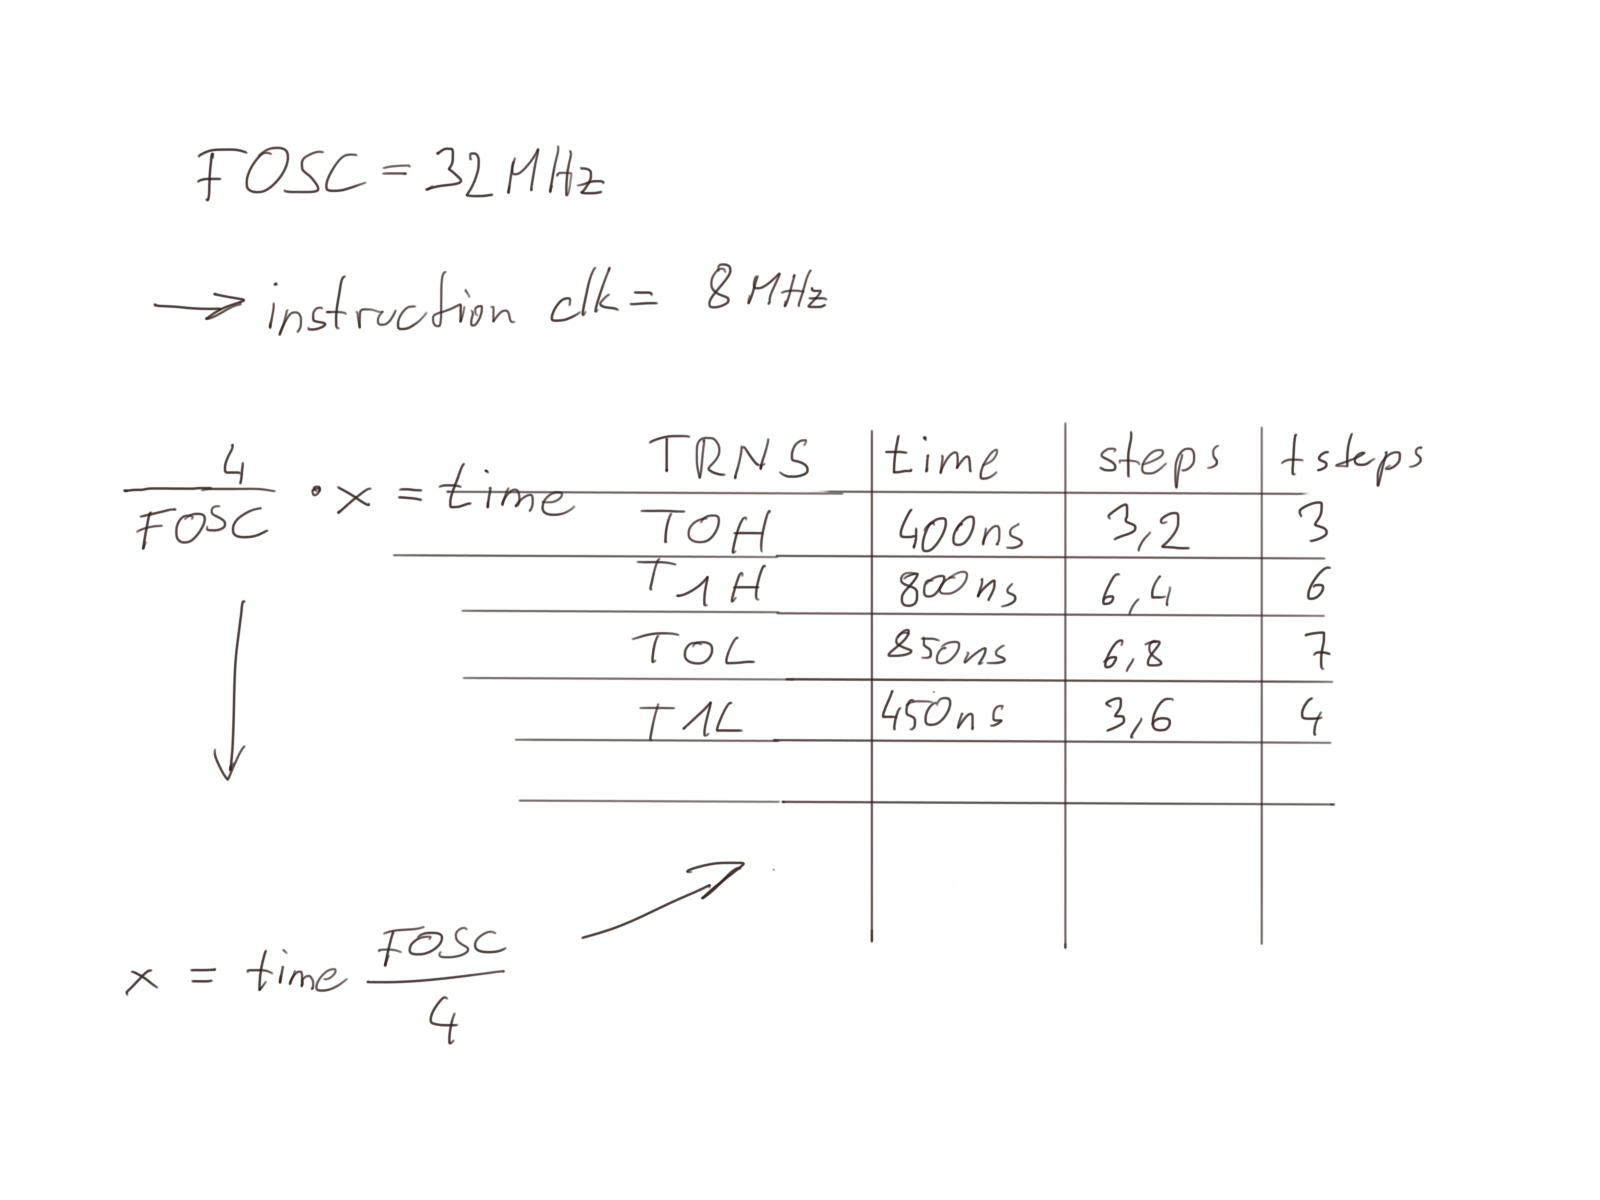 FOSC = 32 MHz
→ instruction clk = 8 MHz
4
FOSC
· x = time
TRNS time steps tsteps
TOH 400ns 3,2 3
T1H 800ns 6,4 6
TOL 850ns 6,8 7
T1L 450ns 3,6 4
x = time FOSC
4